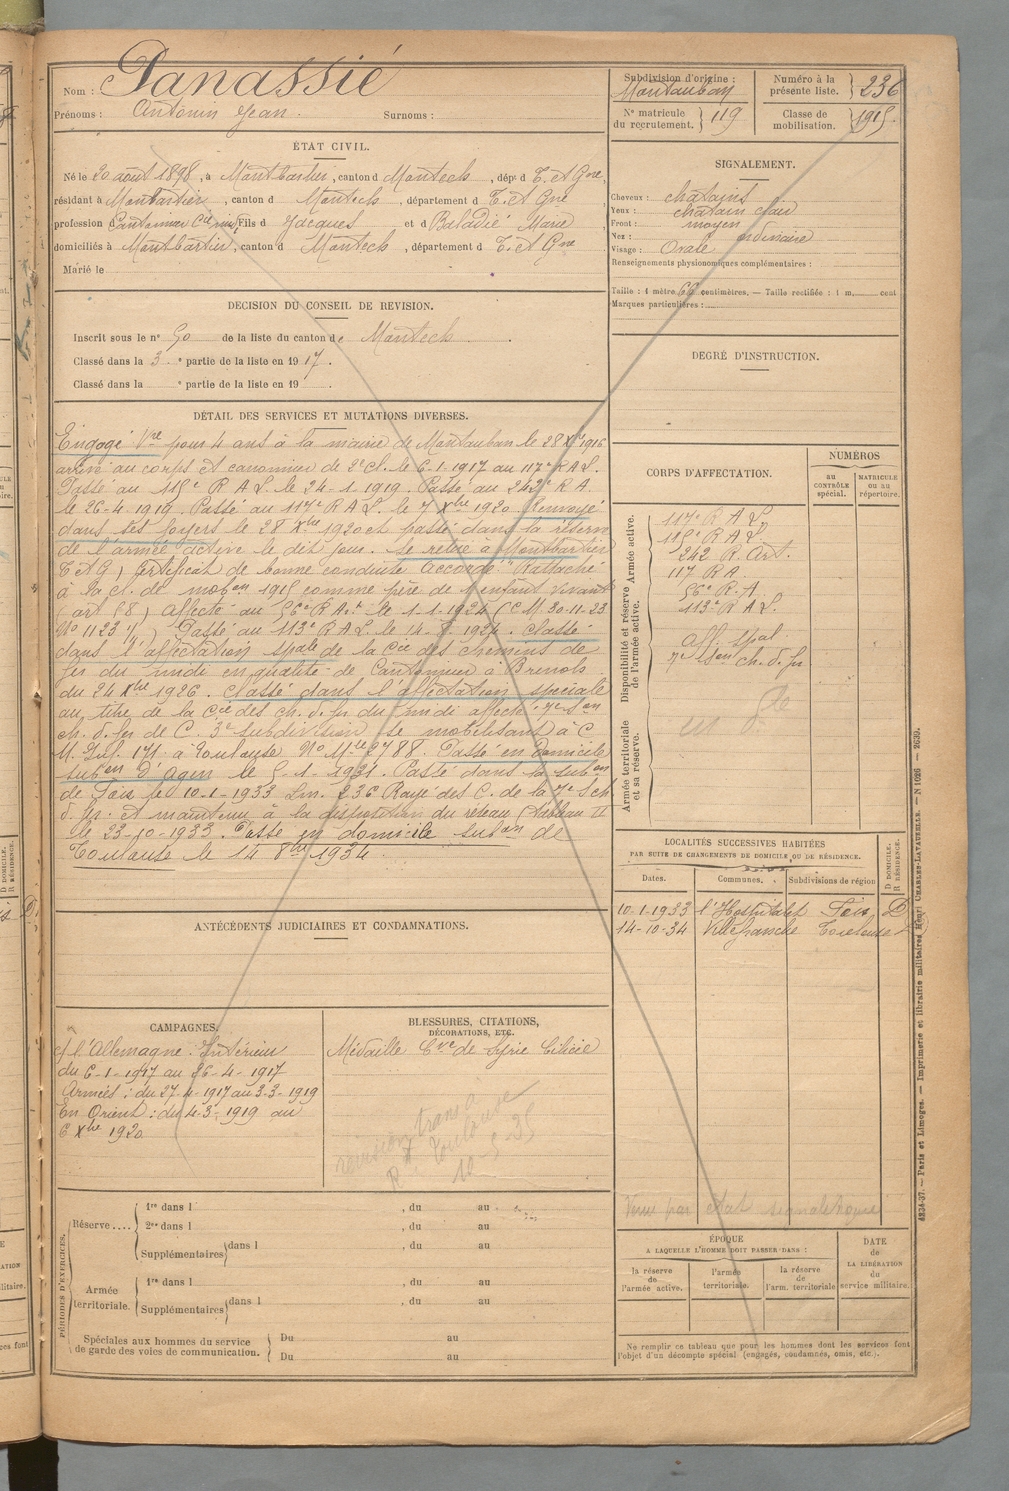 Nom : Panassié
Prénoms : Antonin Jean. Surnoms :
Subdivision d'origine : Montauban
Numéro à la présente liste. 236
N° matricule du recrutement. 119
Classe de mobilisation. 1915.
ÉTAT CIVIL.
Né le 20 août 1898, à Montbartier, canton d Montech, dépt d T. et Gne,
résidant à Montbartier, canton d Montech, département d T. et Gne,
profession Cantonnier Cie midi, Fils d Jacques et d Baladié Marie
domiciliés à Montbartier, canton d Montech, département d T. et Gne
Marié le
SIGNALEMENT.
Cheveux : chatains
Yeux : chatain clair
Front : moyen
Nez : ordinaire
Visage : Ovale
Renseignements physionomiques complémentaires :
Taille : 1 mètre 66 centimètres. — Taille rectifiée : 1 m. cent
Marques particulières :
DÉCISION DU CONSEIL DE REVISION.
Inscrit sous le n° 50 de la liste du canton de Montech.
Classé dans la 3e partie de la liste en 1917.
Classé dans la e partie de la liste en 19 .
DEGRÉ D'INSTRUCTION.
DÉTAIL DES SERVICES ET MUTATIONS DIVERSES.
Engagé Vre pour 4 ans à la mairie de Montauban le 28 Xbre 1916
arrivé au corps et canonnier de 2e Cl. le 6-1-1917 au 117e R A L.
Passé au 115e R A L. le 24-1-1919. Passé au 242e R A.
le 26-4-1919. Passé au 117e R A L. le 7 Xbre 1920 Renvoyé
dans ses foyers le 28 Xbre 1920 et passé dans la réserve
de l'armée active le dit jour. Se retire à Montbartier
T et G) Certificat de bonne conduite Accordé Rattaché
à la cl. de mobon 1915 comme père de 1 enfant vivant
(art 58) Affecté au 56e R A. le 1-1-1924 (C M. 30-11-23
No 1123 ) Passé au 113e R A L. le 14-5-1924. Classé
dans l'affectation spale de la Cie des chemins de
fer du midi en qualité de Cantonnier à
du 24 Xbre 1926. Classé dans l'affectation spéciale
au titre de la Cie des ch. d. fer du midi affecté 7e Son
ch. d. fer de C. 3e subdivision se mobilisant à C
M. 171 à Toulouse No Mle 2788. Passé en Domicile
subon d'Agen le 5-1-1931. Passé dans la subon
de Foix le 10-1-1933 Lm. 236 Rayé des C. de la 7e Son
d. fer. et maintenu à la disposition du réseau (tableau II
le 23-10-1933. Passé en domicile subon de
Toulouse le 14 8bre 1934.
CORPS D'AFFECTATION.
NUMÉROS
AU CONTRÔLE spécial.
MATRICULE ou au répertoire.
Disponibilité et réserve de l'armée active. Armée active.
117e R A L
115e R A L
242 R. Art.
117 R A.
56e R. A.
113e R A L.
Aff. spal.
7e Son ch. d. fer
Armée territoriale et sa réserve.
LOCALITÉS SUCCESSIVES HABITÉES
PAR SUITE DE CHANGEMENTS DE DOMICILE OU DE RÉSIDENCE.
Dates. Communes. Subdivisions de région D DOMICILE. R RÉSIDENCE.
10-1-1933 l'Hospitalet Foix D
14-10-34 Villefranche Toulouse
ANTÉCÉDENTS JUDICIAIRES ET CONDAMNATIONS.
CAMPAGNES.
c/ l'Allemagne : Intérieur
du 6-1-1917 au 26-4-1917
Armées : du 27-4-1917 au 3-3-1919
En Orient : du 4-3-1919 au
6 Xbre 1920
BLESSURES, CITATIONS,
DÉCORATIONS, ETC.
Médaille Cve de Syrie Cilicie
Toulouse
Venu par état signalétique
PÉRIODES D'EXERCICES.
Réserve....
1re dans l , du au
2me dans l , du au
Supplémentaires dans l , du au
Armée territoriale.
1re dans l , du au
Supplémentaires dans l , du au
Spéciales aux hommes du service de garde des voies de communication.
Du au
Du au
ÉPOQUE
A LAQUELLE L'HOMME DOIT PASSER DANS :
la réserve de l'armée active.
l'armée territoriale.
la réserve de l'arm. territoriale
DATE de LA LIBÉRATION du service militaire.
Ne remplir ce tableau que pour les hommes dont les services font
l'objet d'un décompte spécial (engagés, condamnés, omis, etc.).
4224-37. — Paris et Limoges. — Imprimerie et librairie militaires Henri CHARLES-LAVAUZELLE. — N 1026 — 2639.